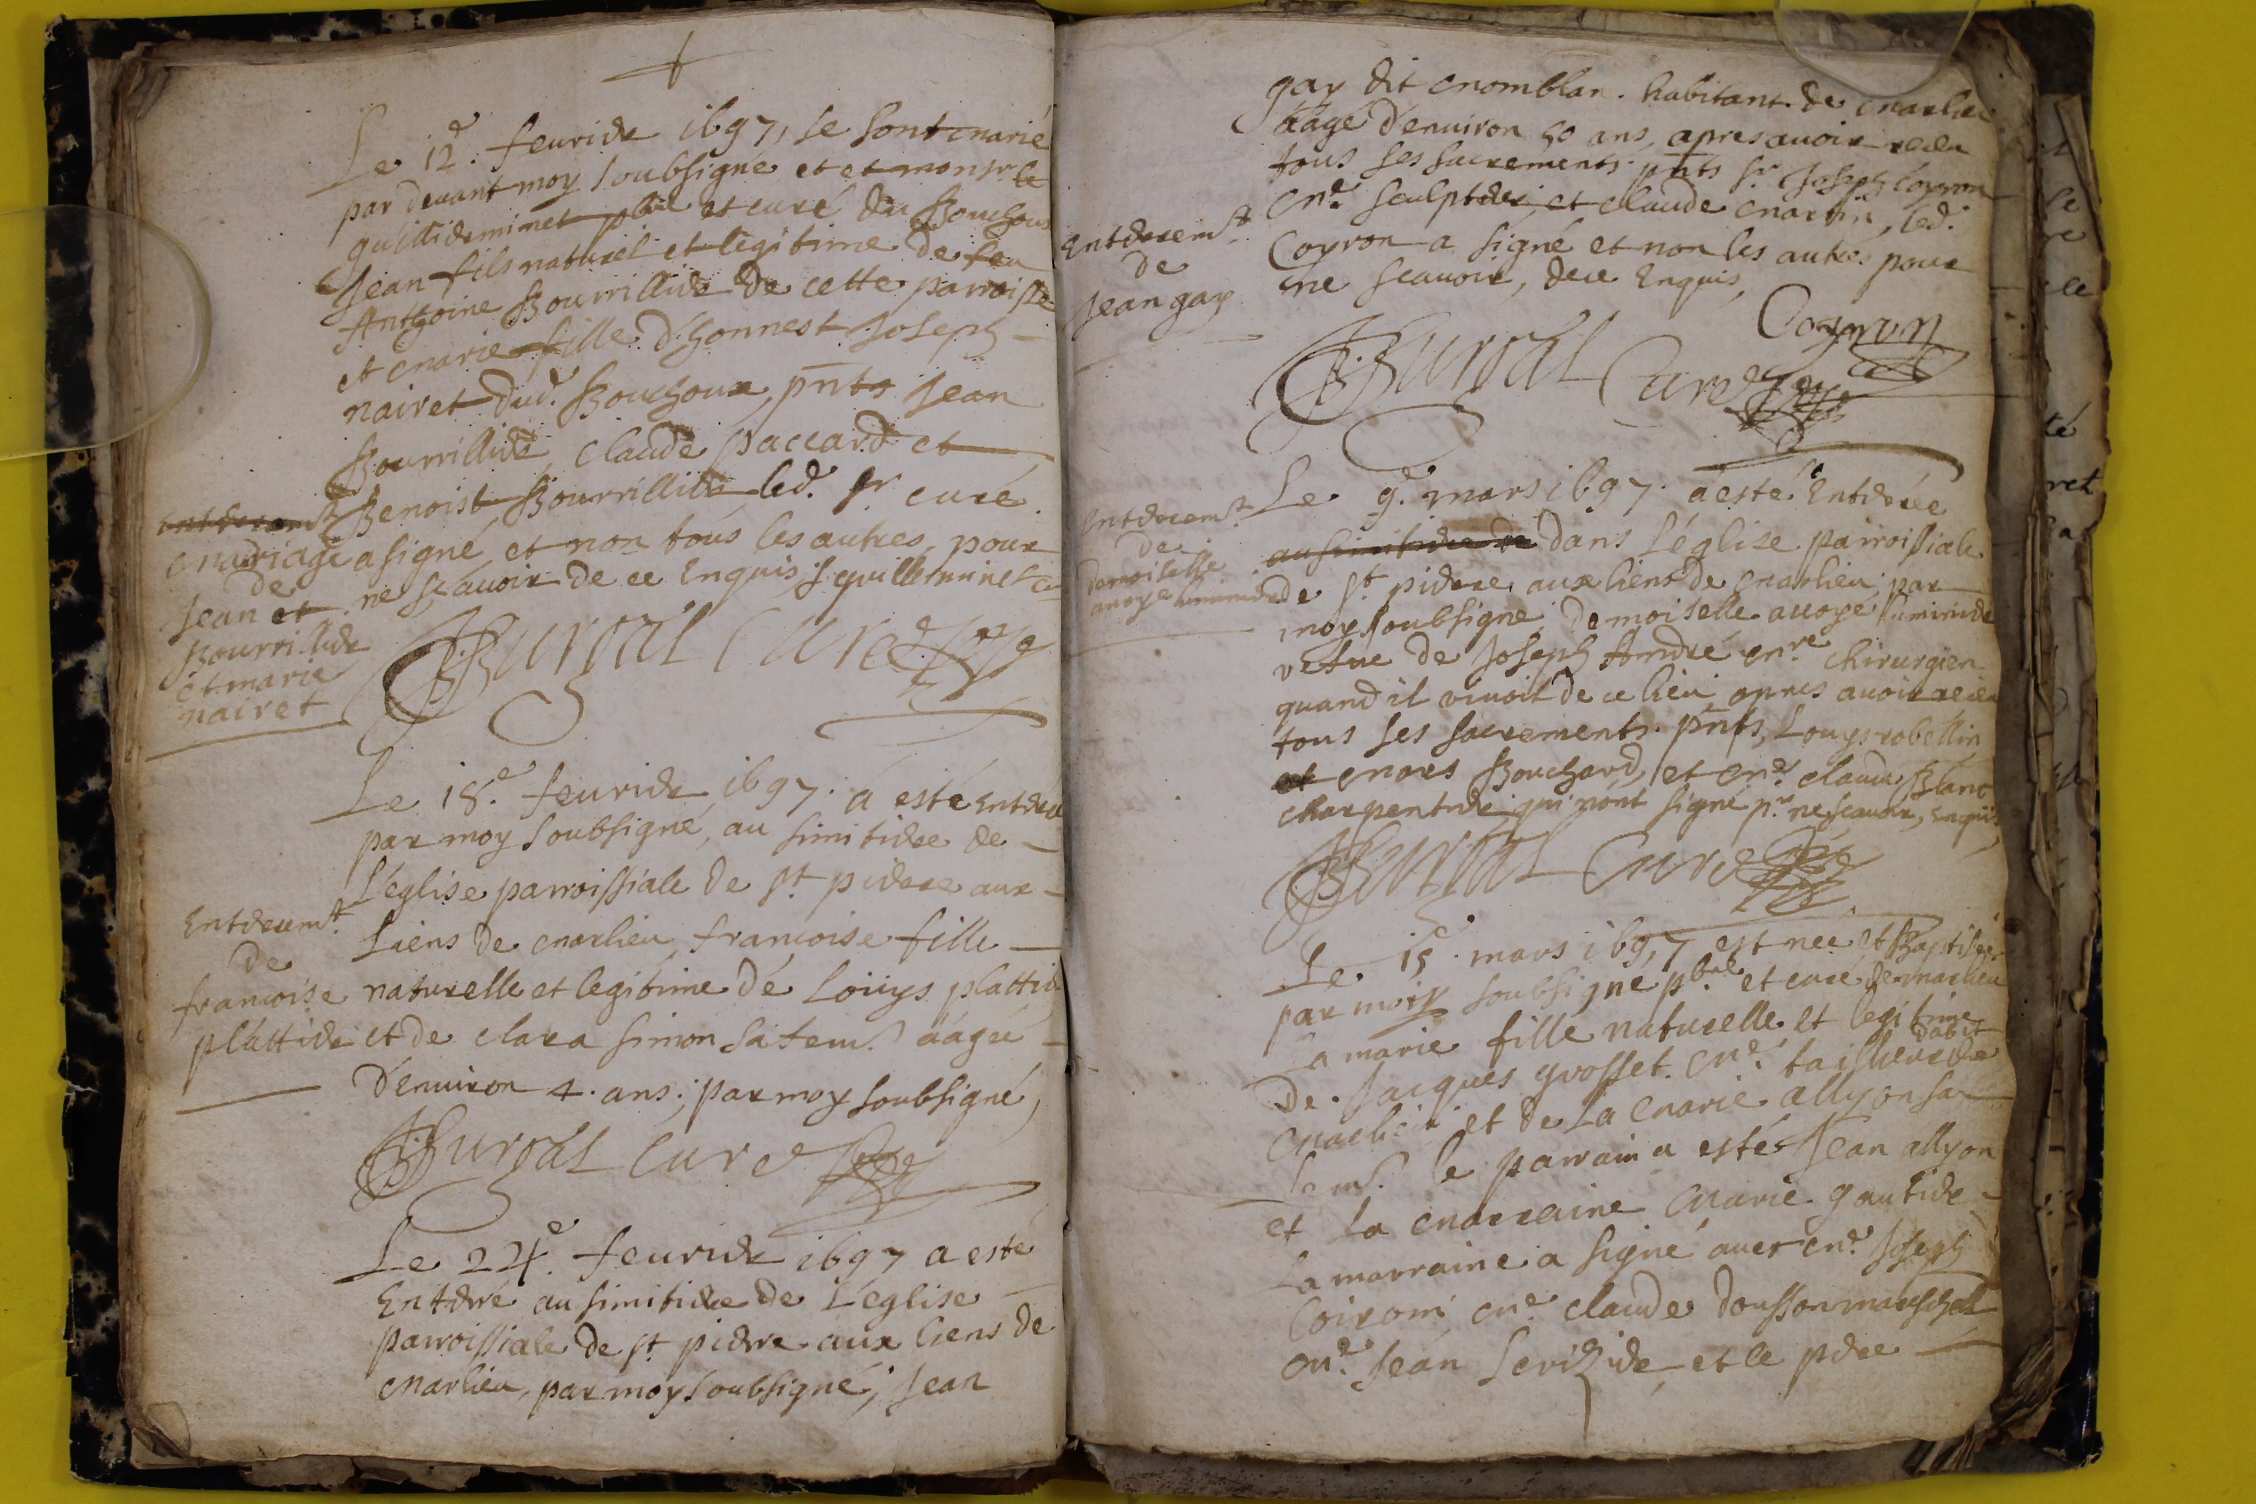 Le 12e. feurier 1697, se sont marié
par deuant moy soubsigné et et monsr le
guilleminet pbre et curé du Bouchoux
Jean fils naturel et legitime de feu
Anthoine Bourrillier de cette parroisse
et marie fille d'honnest Joseph
nairet dud. Bouchoux, pnts Jean
Bourrillier, claude paccard et
Benoist Bourrillier, led. sr curé
a signé et non tous les autres, pour
ne scauoir de ce Enquis, J guilleminet
Burdal Curé
mariage
de
Jean et
Bourrillier
et marie
nairet
Le 18e. feurier 1697. a esté Enteree
par moy soubsigné, au simitiere de
L'église parroissiale de st pierre aux
Liens de marlieu francoise fille
naturelle et legitime dé Loüys plattier
et de clara simon sa fem. aagée
d'Enuiron 4. ans; par moy soubsigné,
Burdal Curé
Enterremt
de
francoise
plattier
Le 24e. feurier 1697 a esté
Enterré au simitiere de L'église
parroissiale de st pierre aux liens de
marlieu, par moy soubsigné, Jean
gay dit momblan. habitant de marlieu
aagé d'enuiron 50 ans, apres auoir receu
tous ses sacrements. pnts sr Joseph Coyron
me. sculpter, et claude martin, led.
Coyron a signé et non les autres pour
ne scauoir, dece Enquis,
Coyron
Burdal Curé
Enterremt
de
Jean gay
Le 9e. mars 1697. a esté Enterée
au simitiere de dans L'église parroissiale
de st pierre aux liens de marlieu, par
moy soubsigné, demoiselle auoye
vefue de Joseph André me chirurgien
quand il viuoit de ce lieu apres auoir receu
tous ses sacrements. pnts, Louys robellin
et mars Bouchard, et me. claude Blanc
charpentier qui n'ont signé pr. ne scauoir, Enquis,
Burdal Curé
Enterremt
de
demoiselle
auoye
Le 15e. mars 1697 est née et Baptisée
par moy soubsigné pbre et curé de marlieu
La marie fille naturelle et legitime
de Jacques grosset. me. tailleur dabit de
marlieu et de La marie allyon sa
fem. le parrain a estés Jean allyon
et La marraine marie gautier
La marraine a signé auec me. Joseph
Coiron me claude Dousson mareschal
me. Jean et le pere